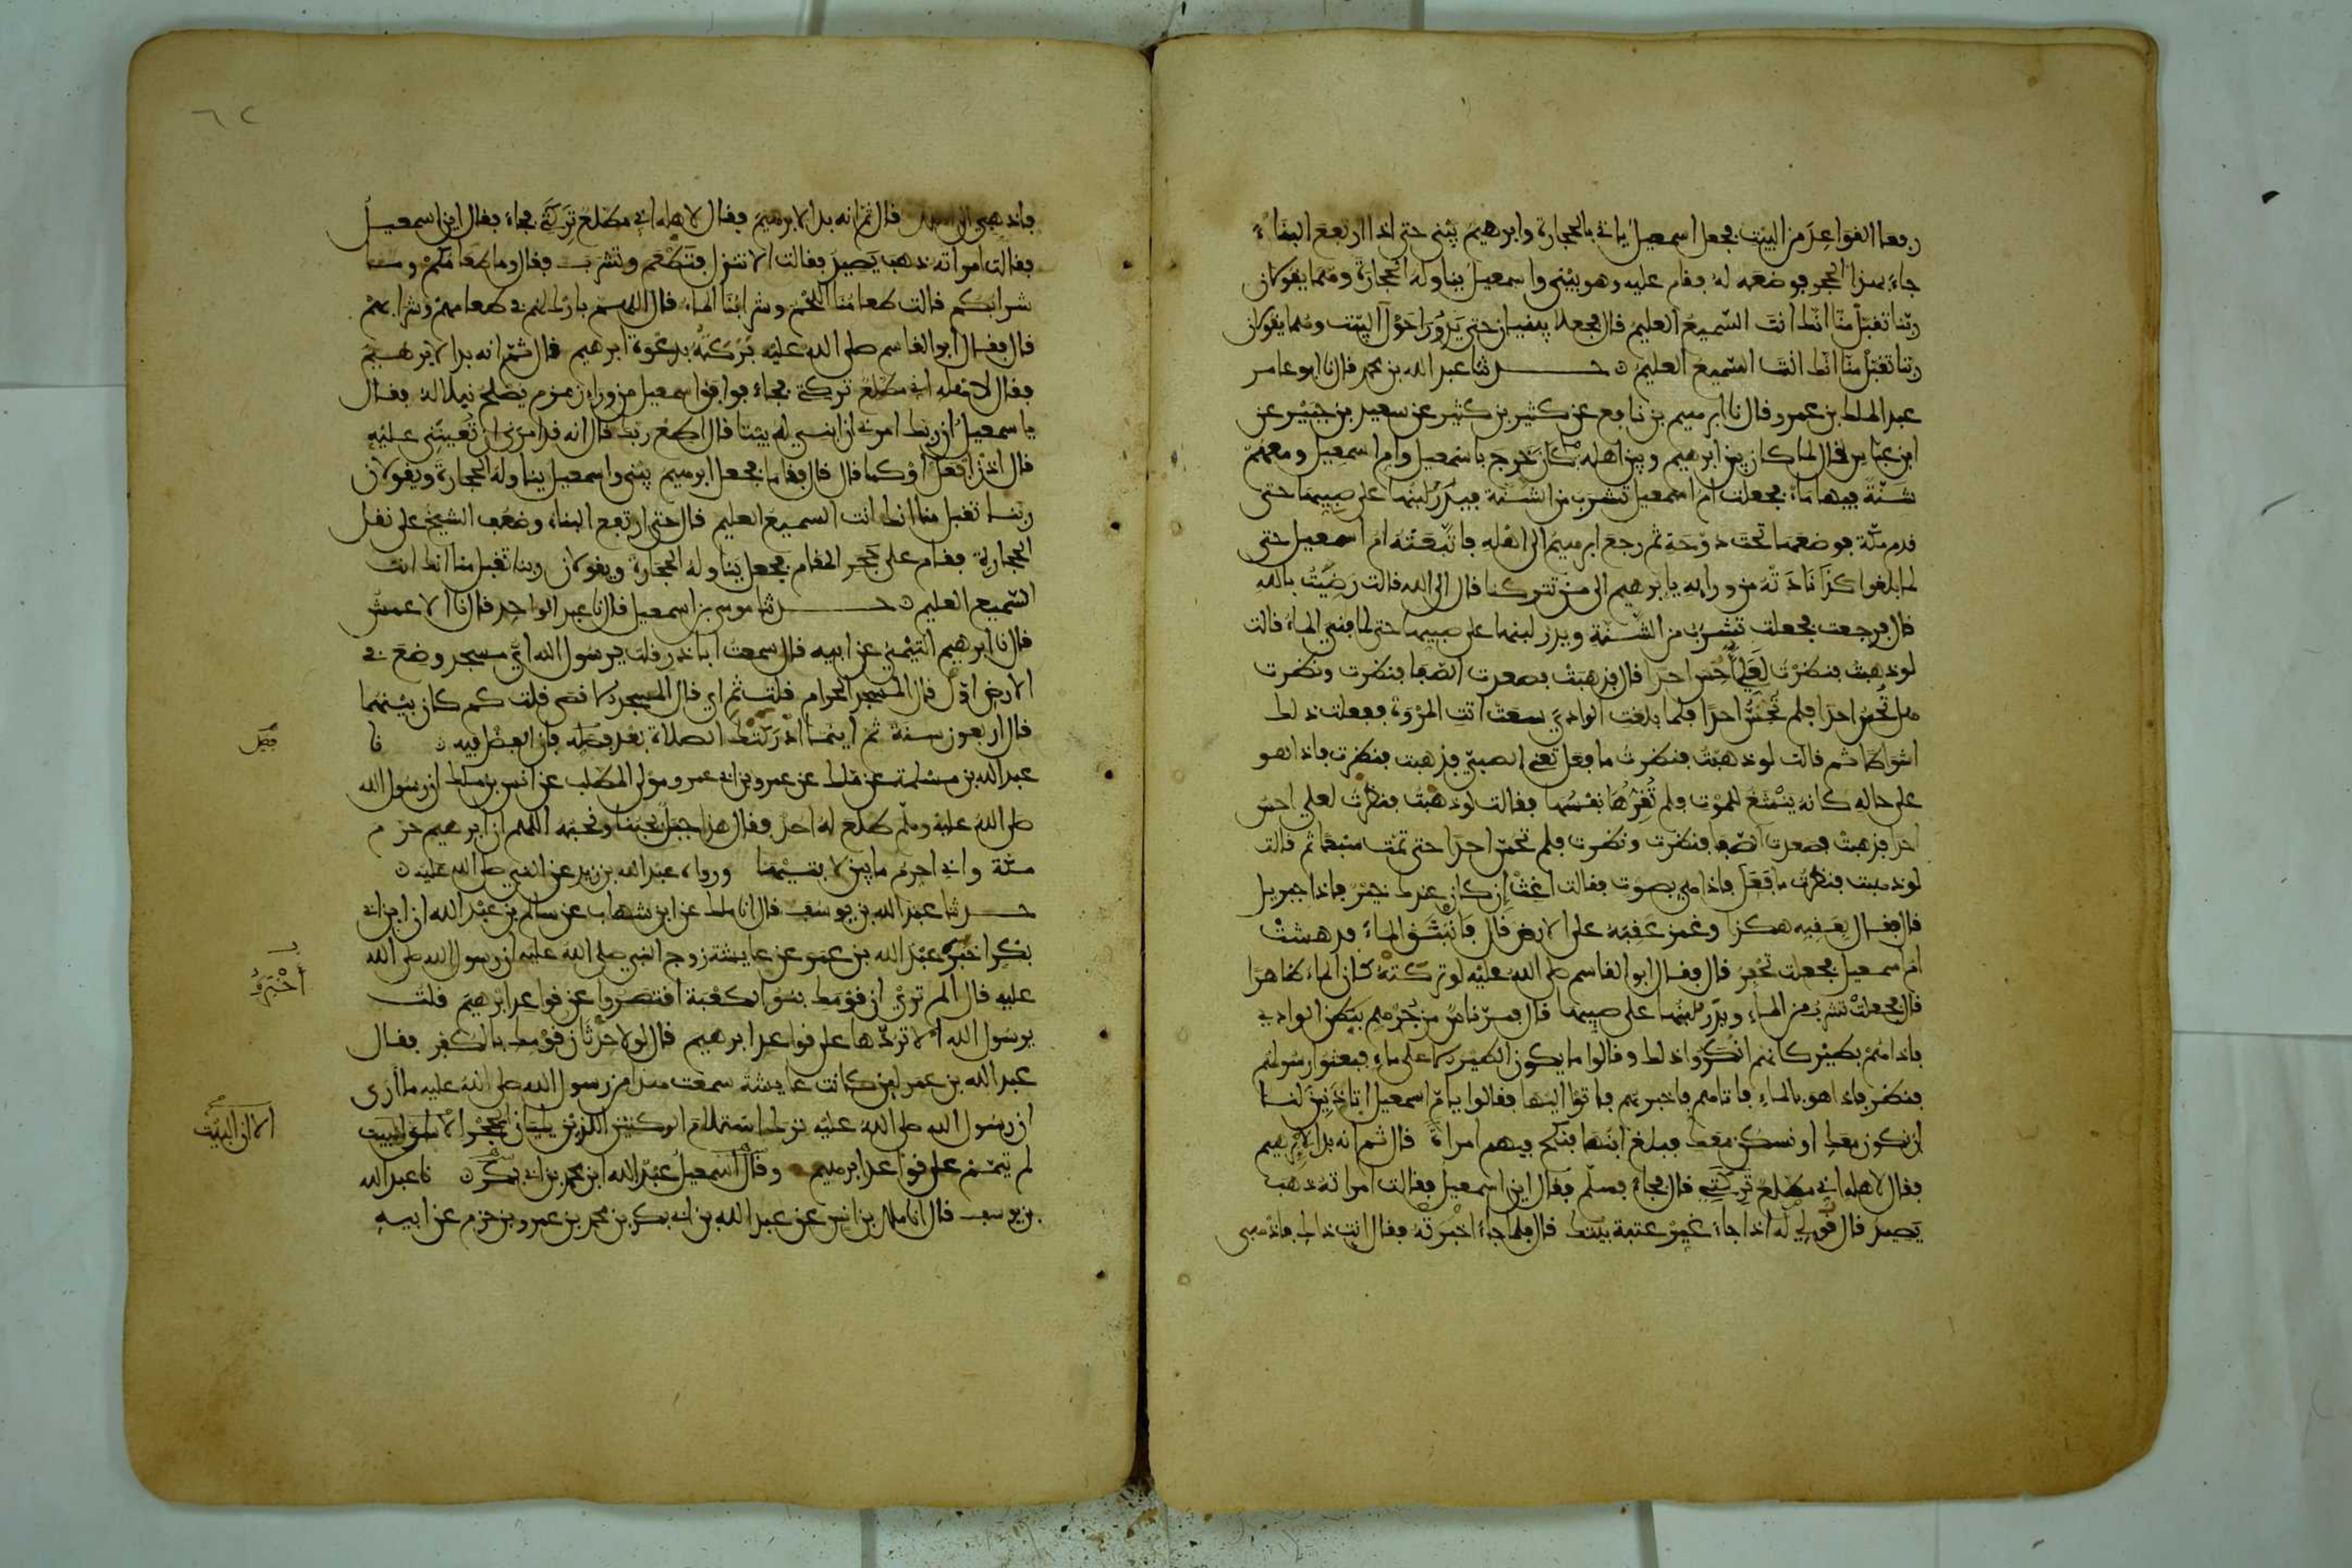 رفعا القواعد من البيت فجعل اسمعيل ياتي بالحجارة وابرهيم يبني حتى اذا ارتفع البناء
جاء بهذا الحجر فوضعه له فقام عليه وهو يبني واسمعيل يناوله الحجارة وهما يقولان
ربنا تقبل منا انك انت السميع العليم قال فجعلا يبنيان حتى يدورا حول البيت وهما يقولان
ربنا تقبل منا انك انت السميع العليم حدثنا عبد الله بن محمد قال نا ابو عامر
عبد الملك بن عمرو قال نا ابرهيم بن نافع عن كثير بن كثير عن سعيد بن جبير عن
ابن عباس قال لما كان بين ابرهيم وبين اهله ما كان خرج باسمعيل وام اسمعيل ومعهم
شنة فيها ماء فجعلت ام اسمعيل تشرب من الشنة فيدر لبنها على صبيها حتى
قدم مكة فوضعها تحت دوحة ثم رجع ابرهيم الى اهله فاتبعته ام اسمعيل حتى
لما بلغوا كدا نادته من ورايه يا ابرهيم الى من تتركنا قال الى الله قالت رضيت بالله
قال فرجعت فجعلت تشرب من الشنة ويدر لبنها على صبيها حتى لما فني الماء قالت
لو ذهبت فنظرت لعلي احس احدا قال فذهبت فصعدت الصفا فنظرت ونظرت
هل تحس احدا فلم تحس احدا فلما بلغت الوادي سعت اتت المروة ففعلت ذلك
اشواطا ثم قالت لو ذهبت فنظرت ما فعل تعني الصبي فذهبت فنظرت فاذا هو
على حاله كانه ينشغ للموت فلم تقرها نفسها فقالت لو ذهبت فنظرت لعلي احس
احدا فذهبت فصعدت الصفا فنظرت ونظرت فلم تحس احدا حتى تمت سبعا ثم قالت
لو ذهبت فنظرت ما فعل فاذا هي بصوت فقالت اغث ان كان عندك خير فاذا جبريل
قال فقال بعقبه هكذا وغمز عقبه على الارض قال فانبثق الماء فدهشت
ام اسمعيل فجعلت تحفر قال فقال ابو القاسم صلى الله عليه لو تركته كان الماء ظاهرا
قال فجعلت تشرب من الماء ويدر لبنها على صبيها قال فمر ناس من جرهم ببطن الوادي
فاذا هم بطير كانهم انكروا ذلك وقالوا ما يكون الطير الا على ماء فبعثوا رسولهم
فنظر فاذا هو بالماء فاتاهم فاخبرهم فاتوا اليها فقالوا يا ام اسمعيل اتاذنين لنا
ان نكون معك او نسكن معك فبلغ ابنها فنكح فيهم امراة قال ثم انه بدا لابرهيم
فقال لاهله اني مطلع تركتي قال فجاء فسلم فقال اين اسمعيل فقالت امراته ذهب
يصيد قال قولي له اذا جاء غير عتبة بيتك قال فلما جاء اخبرته فقال انت ذاك فاذهبي
فاذهبي الى اهلك قال ثم انه بدا لابرهيم فقال لاهله اني مطلع تركتي فجاء فقال اين اسمعيل
فقالت امراته ذهب يصيد فقالت الا تنزل فتطعم وتشرب فقال وما طعامكم وما
شرابكم قالت طعامنا اللحم وشرابنا الماء قال اللهم بارك لهم في طعامهم وشرابهم
قال فقال ابو القاسم صلى الله عليه بركته بدعوة ابرهيم قال ثم انه بدا لابرهيم
فقال لاهله اني مطلع تركتي فجاء فوافق اسمعيل من وراء زمزم يصلح نبلا له فقال
يا اسمعيل ان ربك امرني ان ابني له بيتا قال اطع ربك قال انه قد امرني ان تعينني عليه
قال اذن افعل او كما قال قال فقاما فجعل ابرهيم يبني واسمعيل يناوله الحجارة ويقولان
ربنا تقبل منا انك انت السميع العليم قال حتى ارتفع البناء وضعف الشيخ على نقل
الحجارة فقام على حجر المقام فجعل يناوله الحجارة ويقولان ربنا تقبل منا انك انت
السميع العليم حدثنا موسى بن اسمعيل قال نا عبد الواحد قال نا الاعمش
قال نا ابرهيم التيمي عن ابيه قال سمعت ابا ذر قلت يرسول الله اي مسجد وضع في
الارض اول قال المسجد الحرام قلت ثم اي قال المسجد الاقصى قلت كم كان بينهما
قال اربعون سنة ثم اينما ادركتك الصلاة بعد فصله فان الفضل فيه نا
فصل
عبد الله بن مسلمة عن ملك عن عمرو بن ابي عمرو مولى المطلب عن انس بن ملك ان رسول الله
صلى الله عليه وسلم طلع له احد فقال هذا جبل يحبنا ونحبه اللهم ان ابرهيم حرم
مكة واني احرم ما بين لابتيها ورواه عبد الله بن زيد عن النبي صلى الله عليه
حدثنا عبد الله بن يوسف قال انا ملك عن ابن شهاب عن سالم بن عبد الله ان ابن ابي
بكر اخبر عبد الله بن عمر عن عايشة زوج النبي صلى الله عليه ان رسول الله صلى الله
عليه قال الم تري ان قومك بنوا الكعبة اقتصروا عن قواعد ابرهيم قلت
يرسول الله الا تردها على قواعد ابرهيم قال لولا حدثان قومك بالكفر فقال
عبد الله بن عمر لين كانت عايشة سمعت هذا من رسول الله صلى الله عليه ما ارى
ان رسول الله صلى الله عليه ترك استلام الركنين الذين يليان الحجر
الا ان البيت
لم يتمم على قواعد ابرهيم وقال اسمعيل عبد الله ابن محمد بن ابي بكر نا عبد الله
بن يوسف قال انا ملك بن انس عن عبد الله بن ابي بكر بن محمد بن عمرو بن حزم عن ابيه